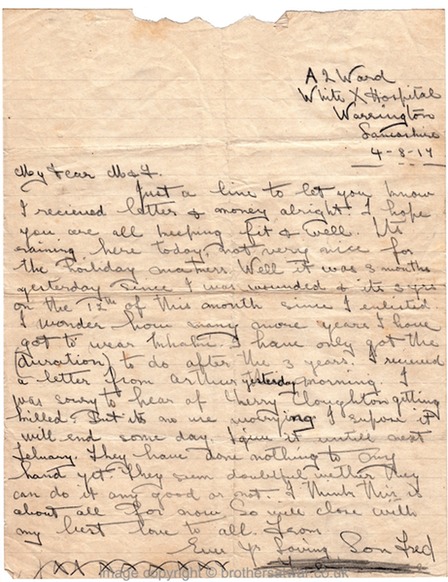 A 2 Ward
White X Hospital
Warrington
Lancashire
4-8-17
My Dear M & F.
Just a line to let you know
I recieved letter & money alright I hope
you are all keeping fit & well. Its
raining here today not very nice for
the Holiday makers Well it was 3 months
yesterday since I was wounded & its 3 yrs
on the 12th of this month since I enlisted
I wonder how many more years I have
got to wear khaki. I have only got the
(duration) to do after the 3 years. I recieved
a letter from Arthur yesterday morning. I
was sorry to hear of Cloughton getting
killed. But its no use worrying I supose it
will end some day. I give it untill next
Febuary. They have done nothing to my
hand yet. They seem doubtful wether they
can do it any good or not. I think this is
about all for now So will close with
my best love to all. From
Ever Yr Loving Son Fred
XXXXXXXX
image copyright © brothersatwar.co.uk